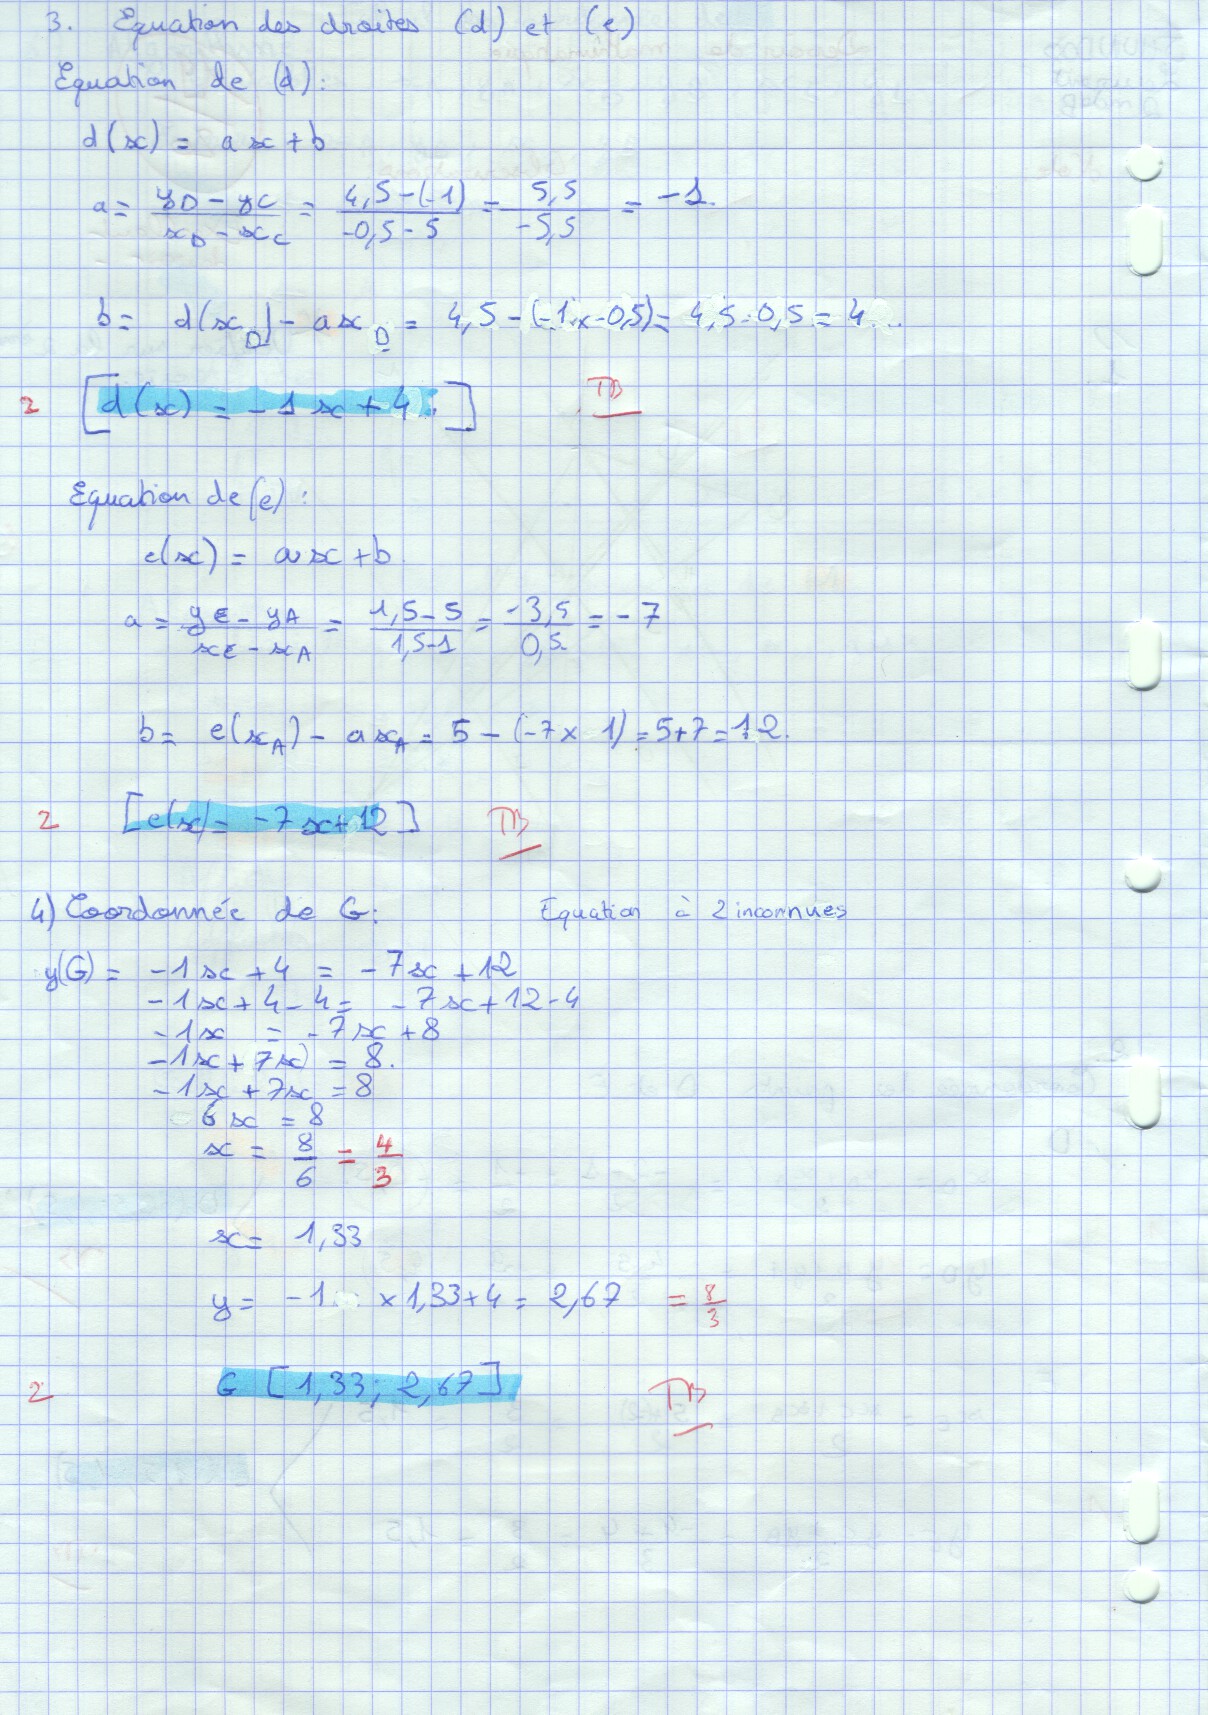 3. Equation des droites (d) et (e)
Equation de (d):
d(x) = ax+b
a = (yD - yC)/(xD - xC) = (4,5-(-1))/(-0,5-5) = 5,5/-5,5 = -1.
b = d(xD) - axD = 4,5 - (-1 x -0,5) = 4,5-0,5 = 4
2 [d(x) = -1x + 4.] TB
Equation de (e):
e(x) = ax+b.
a = (yE - yA)/(xE - xA) = (1,5-5)/(1,5-1) = -3,5/0,5 = -7
b = e(xA) - axA = 5 - (-7 x 1) = 5+7 = 12.
2 [e(x) = -7x+12] TB
4) Coordonnée de G: Equation à 2 inconnues
y(G) = -1x + 4 = -7x + 12
-1x + 4 - 4 = -7x + 12 - 4
-1x = -7x + 8
-1x + 7x) = 8.
-1x + 7x = 8
6x = 8
x = 8/6 = 4/3
x = 1,33
y = -1 x 1,33 + 4 = 2,67 = 8/3
2 G [1,33; 2,67] TB